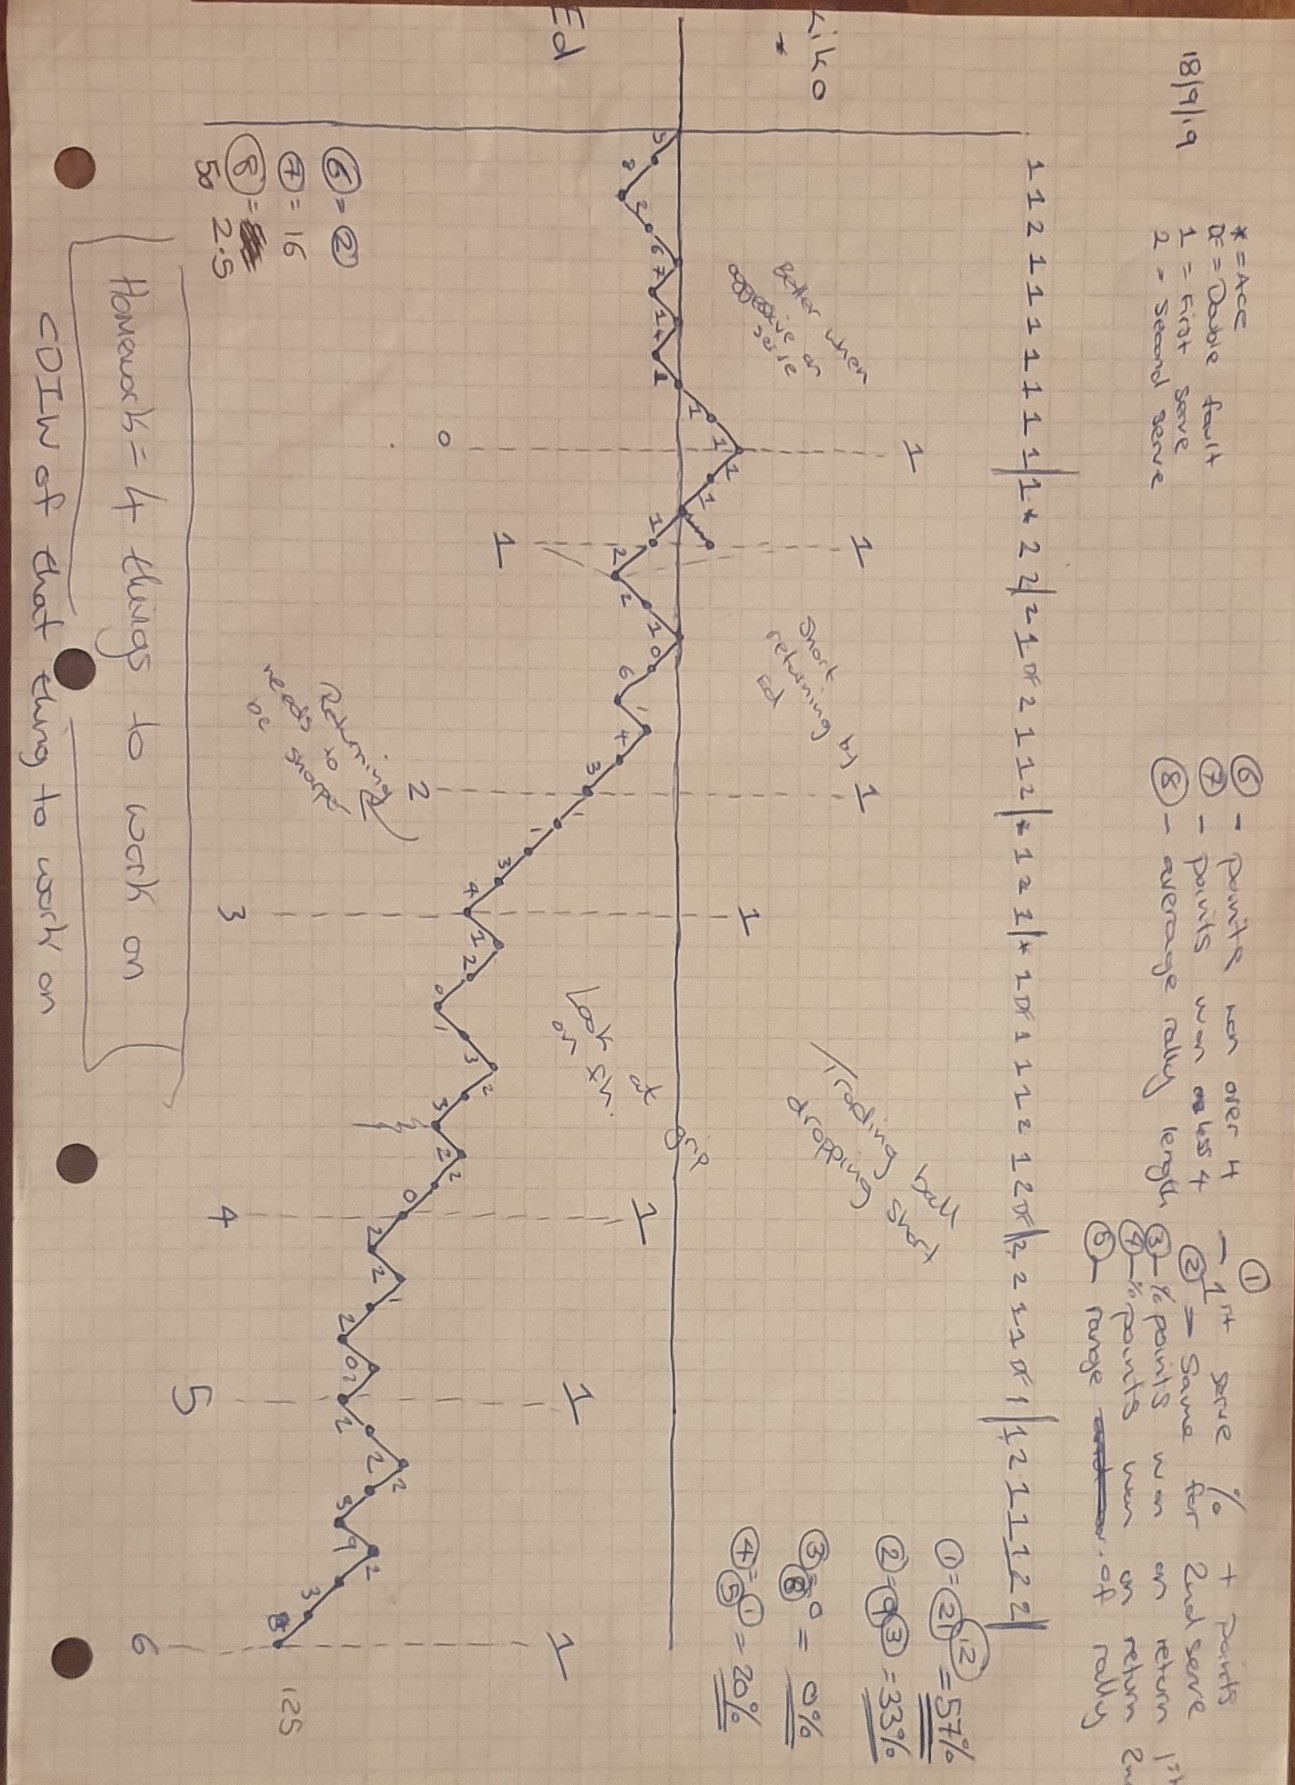 18/9/19
* = Ace
DF = Double fault
1 = First serve
2 = Second serve
⑥ - points won over 4
⑦ - points won less 4
⑧ - average rally length
①
- 1st serve % + points
② - Same for 2nd serve
③ - % points won on return 1st
④ - % points won on return 2nd
⑤ - range of rally
1 1 2 1 1 1 1 1 1 1 | 1 * 2 2 | 2 1 DF 2 1 1 2 | * 1 2 1 | * 1 DF 1 1 1 2 1 2 DF | 2 2 1 1 DF 1 | 1 2 1 1 1 2 2 |
① = 21 12 = 57%
② = 9 3 = 33%
③ = 8 0 = 0%
④ = 5 1 = 20%
Kiko
*
Ed
Better when
aggressive on
serve
Short
returning by
Ed
Trading ball
dropping short
Look at grip
on fh.
Returning
needs to
be sharper
1
1
1
1
1
1
1
0
1
2
3
4
5
6
125
⑥ = ②
⑦ = 16
⑧ =
50 2.5
Homework = 4 things to work on
CDIW of that thing to work on